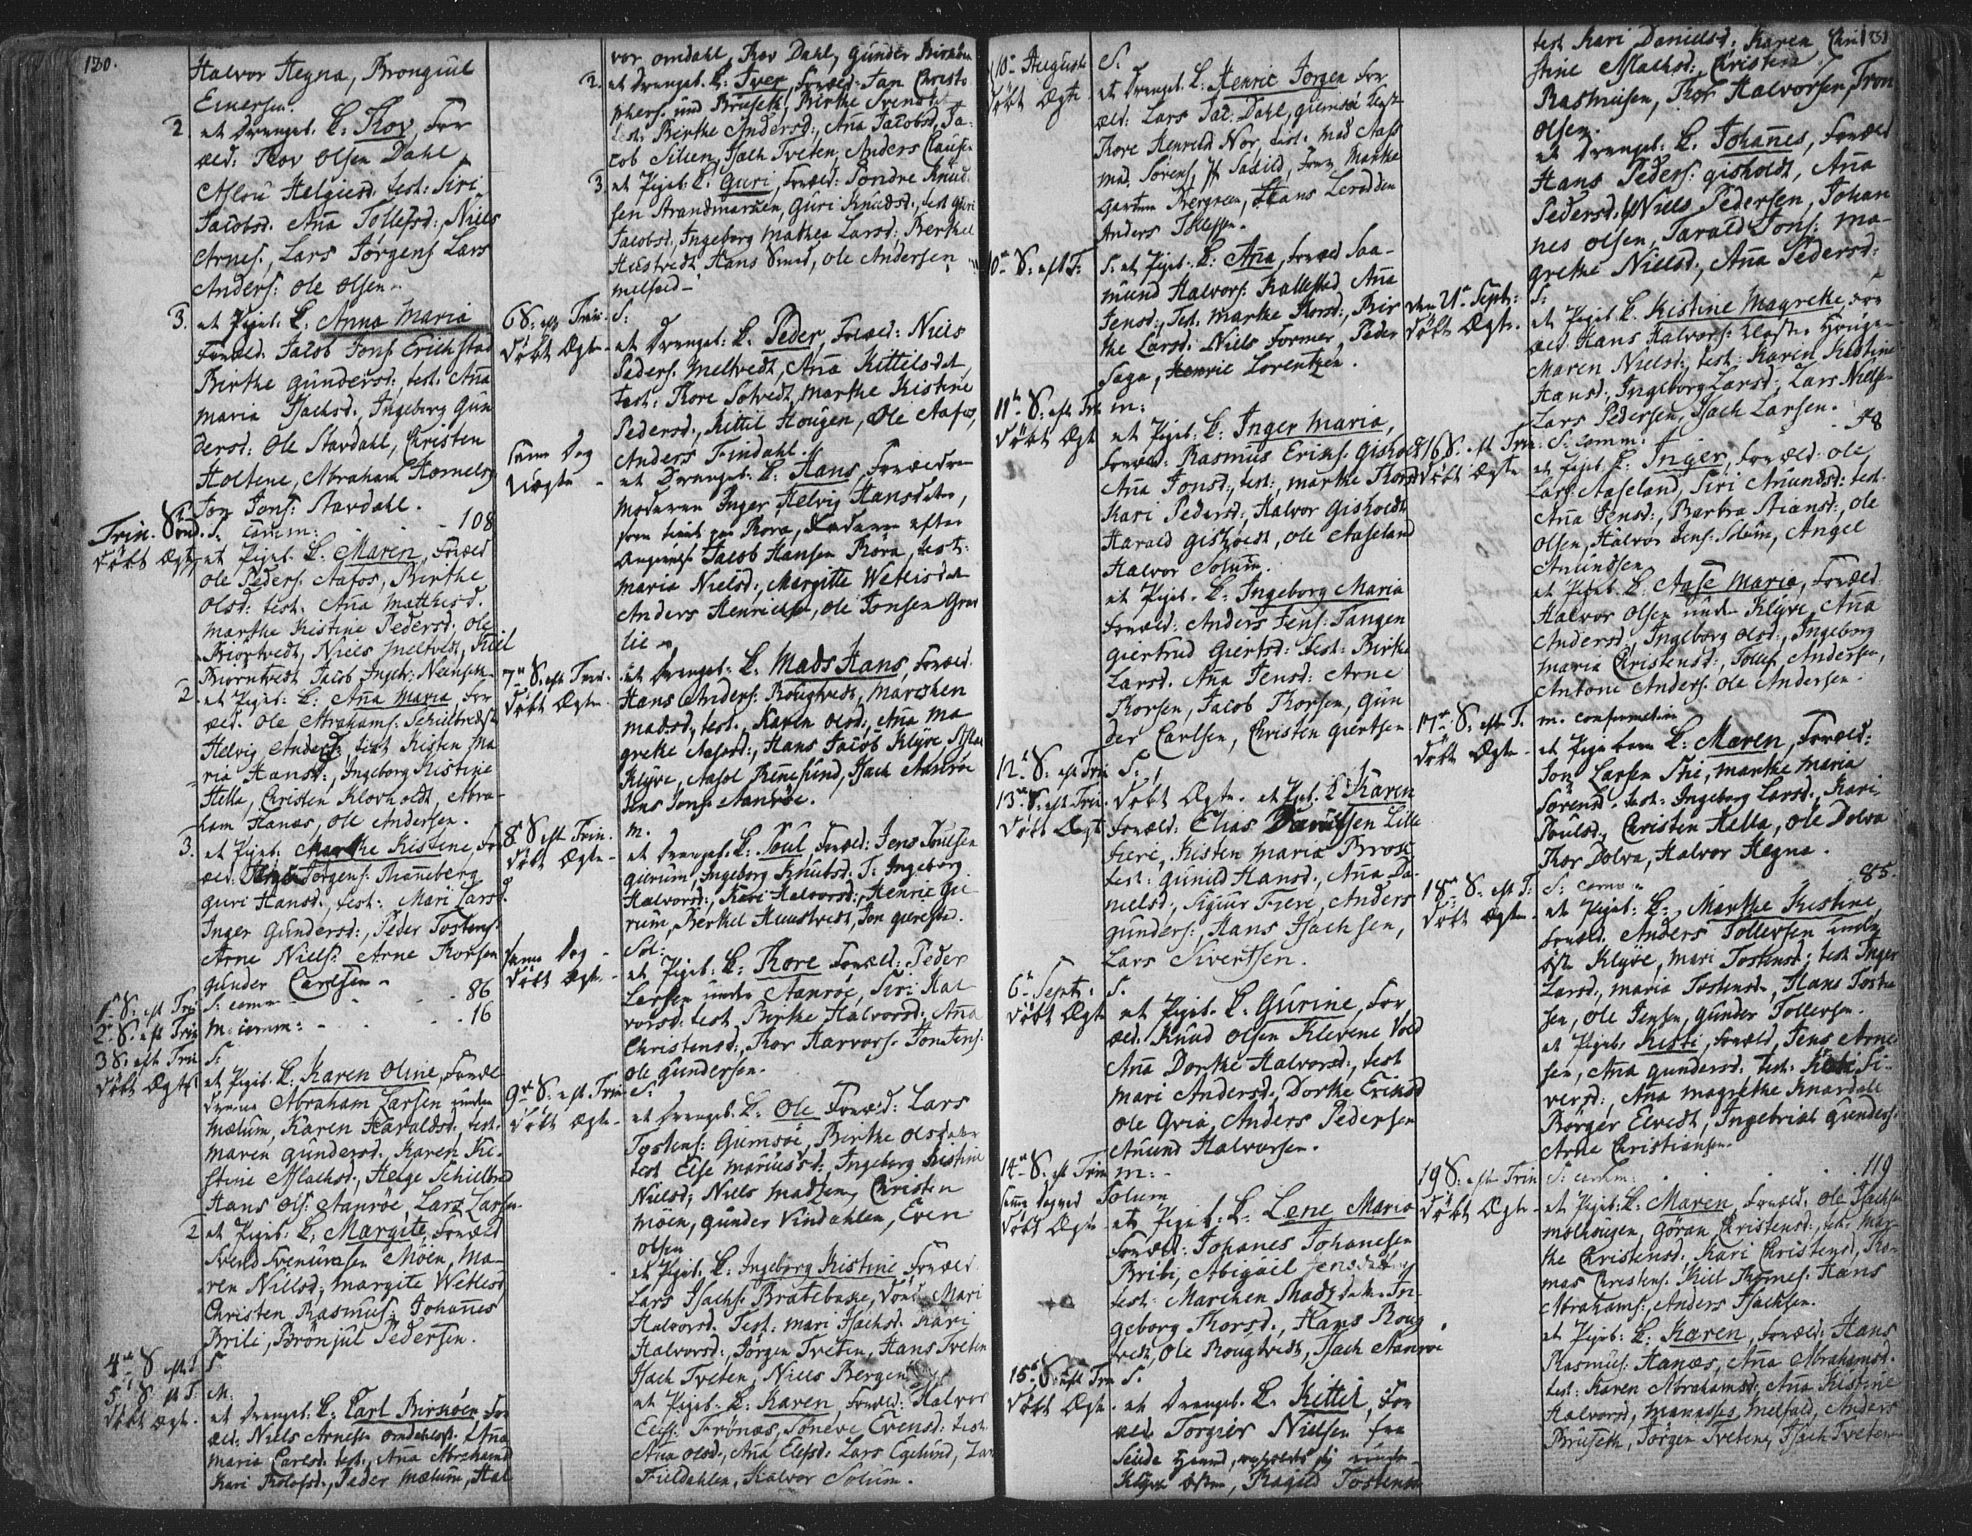 120.
Halvor Hegna, Bronguul
Einersen.
2. et Drengeb. L: Thov, For
æld: Thov Olsen Dahl
Aslou Helgiesd. test: Siri
Jacobsd. Aña Tollefsd:, Niels
Arnes., Lars Jørgens Lars
Anders: Ole Olsen.
3. et Pigeb. L: Anna Maria
Foræld: Jacob Jons: Erichstad
Birthe Gundersd: test: Aña
Maria Isachsd., Ingeborg Gun
dersd: Ole Stavdahl, Christen
Holtene, Abraham
Jon Jons: Stavdahl.
Trin. Sønd. S: Comm: - 108
Døbt Ægte et Pigeb. L: Maren, Foræld
Ole Peders. Aafos, Birthe
Olsd: test. Aña Matthisd.
Marthe Kistine Pedersd. Ole
Biortvedt, Niels Meltvedt, Kiel
Biorntvedt Jacob
2. et Pigeb. L: Aña Maria For
æld. Ole Abrahams. Schilbred
Helvig Andersd. test Kisten Ma
ria Hansd:, Ingeborg Kistine
Hella, Christen Klovholdt, Abra-
ham Hanæs, Ole Andersen.
3. et Pigeb: Marthe Kistine, For
æld: Jørgens: Thaneberg
Guri Hansd., test: Mari Larsd.
Inger Gundersd:, Peder Tostens:
Arne Niels: Arne Thorsen
Gunder Carlsen -
1. S: eft Tri S: comm - 86
2. S. eft Trin M: comm: - 16
3 S: eft Trin S:
Døbt Ægte et Pigeb. L: Karen Oline, Foræl
drene Abraham Larsen under
Mælum, Karen Haraldsd, test.
Maren Gundersd. Karen Ki-
stine Aslachsd, Helge Schilbred
Hans Ols: Aanrøe, Lars Larsen
2 et Pigeb: L: Margite, Foræld
Svend Svenunsen Moen, Ma-
ren Nilsd, Margite Wetlesd
Christen Rasmus: Johañes
Brili, Brönjul Pedersen.
4de S eft T. S
5te S. eft T. M.
Døbt Ægte. et Drengeb. L: Carl For
æld: Niels Arnesen Omdahl Aña
Maria Carlsd. test., Aña Abrahamsd
Kari Tholofsd., Peder Mælum, Hal
vor Omdahl, Thov Dahl, Gunder
2. et Drengeb. L: Iver, Foræld: Jan Christo
phers. und Bruseth, Birthe Svendsd
test: Birthe Andersd., Aña Jacobsd, Ja-
cob Silien, Isach Tveten, Anders Clausen
3. et Pigeb. L: Guri, Foræld: Sondre Knud
sen Strandmarken, Guri Knudsd., test Guri
Jacobsd, Ingeborg Mathea Larsd., Berthel
Hustvedt Hans Smed, Ole Andersen
Melseld -
6 S: eft Trin. S:
Døbt Ægte - et Drengeb. L. Peder, Foræld: Niels
Peders. Meltvedt, Aña Kittelsdat,
test: Thore Solvedt, Marthe Kistine
Pedersd., Kittil Hougen, Ole Aafos,
Anders Findahl.
Same Dag et Drengeb. L: Hans, Forældre
Uægte - Moderen Inger Helvig Hansdatr,
som tient paa Thora, Faderen efter
Angivelse Jacob Hansen Thora, test:
Maria Nielsd:, Margitte Wetlesdat
Anders Henrichsen, Ole Jonsen Gras
lie
7de S. eft Trin. et Drengeb: L. Mads Hans, Foræld
Døbt Ægte. Hans Anders: Rougtvedt, Marethen
Madsd., test. Karen Olsd., Aña Ma
grethe Aasold., Hans Jacob Klyve,
Klyve, Aasol Kinesund, Isach Aanrøe
Jens Jons: Aanrøe.
8de S eft Trin. M.
Døbt Ægte - et Drengeb. L. Poul, Foræld: Jens Poulsen
Gierum, Ingeborg Knudsd: T: Ingeborg
Halvorsd:, Kari Halvorsd:, Henric Gie
rum, Berthel Huustvedt, Jon
Same Dag - Sol:
Døbt Ægte - et Pigeb: L: Thore, Foræld: Peder
Larsen under Aanrøe, Siri Hal
vorsd: test Birthe Halvorsd:, Aña
Christensd:, Thor Harvors: Jon Jens:
Ole Gundersen.
9de S. eft Trin S:
Døbt Ægte - et Drengeb. L: Ole Foræld: Lars
Tostens: Gumsøe, Birthe Olsdatr
test Else Mariusd:, Ingeborg Kistine
Nielsd, Niels Madsen, Christen
Moen, Gunder Vindahlen, Even
Olsen
et Pigeb. L: Ingeborg Kistine, Foræld:
Lars Isachs: Bratebaske, Vond Mari
Halvorsd. Test: Mari Isachsd. Kari
Halvorsd:, Jørgen Tveten, Hans Tveten
Isach Tveten, Niels Bergen
et Pigeb: L. Karen, Foræld: Halvor
Elefs: Frönæs, Söneve Evensd: test.
Aña Olsd., Aña Elefsd: Lars Eglund, Lars
Fieldahlen, Halvor Solum.
10de August S.
Døbt Ægte et Drengeb. L: Henric Jørgen For
æld: Lars Jac: Dahl, Gumsöe Kløst
Thore Henricd Nor, test. Mad Aass
Mad. Sørens, Jf. Sadild, Jomf. Marthe
Gartnr Bergreen, Hans Leradden
Anders Tollefsen.
10de S: eft T: S: et Pigeb. L: Aña, Foræld Saa-
mund Halvors: Kallested, Aña
Jensd:, Test. Marthe Thorsd:, Bir
the Larsd. Niels Former, Peder
Saga, Henric Lorentzen.
11te S: eft Tri M:
Døbt Ægt et Pigeb: L: Inger Maria,
Foræld: Rasmus Eriks: Gisholt
Aña Jonsd:, test:, Marthe Thorsd
Kari Pedersd:, Halvor Gisholdt
Harald Gisholdt, Ole Aaseland
Halvor Solum.
et Pigeb. L. Ingeborg Maria
Foræld: Anders Jens: Tangen
Giertrud Giertsd: Test: Birthe
Larsd. Aña Jensd: Arne
Thorsen, Jacob Thorsen, Gun
der Carlsen, Christen Giertsen
12te S: eft Trin S:
13de S: eft Trin. Døbt Ægte. et Pigeb. L: Karen
Døbt Ægt Foræld: Elias Danielsen Lille
Fieri, Kisten Maria Brose
test: Gunild Hansd:, Aña Da-
nielsd:, Sigiur Fiere, Anders
Gunders:, Hans Isachsen,
Lars Sivertsen.
6te Sept: S.
Døbt Ægt et Pigeb. L. Gurine, For
æld: Knud Olsen Klevene Vold
Aña Dorthe Halvorsd:, test
Mari Andersd:, Dorthe Eriksd
Ole Gria, Anders Pedersen
Amund Halvorsen.
14de S. eft Trin M:
Samme Dag ved Solum
Døbt Ægte et Pigeb: L: Lene Maria
Foræld: Johanes Johanesen
Brili, Abigael Jensdatr
test: Marchen Madsdatr In-
geborg Thorsd:, Hans Roug
tvedt, Ole Rougtvedt, Isach Aanroe
15de S: eft Trin S.
Døbt Ægte. et Drengeb. L: Kittil, For
æld Torgier Nielsen fra
Seude Herred, opholdt sig under
Klyve Østre, Ragild Tostensd
131
test Kari Danielsd., Karen Chri
stine Aslachsd:, Christen
Rasmusen, Thor Halvorsen, Tron
Olsen.
et Drengeb. L. Johañes, Foræld
Hans Peders: Gisholdt, Aña
Pedersd., Niels Pedersen, Johan
nes Olsen, Tarald Jons: Ma-
grethe Nielsd:, Aña Pedersd:
Den 21de Sept: S:
Døbt Ægte. et Pigeb. L: Kistine Magrethe, For
æld: Hans Halvors: Klost. Houge-
Maren Nielsd: test: Karen Kistine
Hansd., Ingeborg Larsd., Lars Niels.
Lars Pedersen, Isach Larsen.
16 S. eft Trin S: Comm: - 48
Døbt Ægte et Pigeb. L: Inger, Foræld: Ole
Lars: Aaseland, Siri Amundsd: test.
Aña Jensd:, Barbra Stiansd:, Ole
Olsen, Halvor Jens: Solum, Angel
Amundsen
et Pigeb. L: Aase Maria, Foræld.
Halvor Olsen under Klyve, Aña
Andersd., Ingeborg Olsd:, Ingeborg
Maria Christensd:, Tollef Andersen,
Antoni Anders. Ole Andersen.
17de S. eft T. M. confirmation
Døbt Ægte - et Pigebarn L: Maren, Foræld:
Jon Larsen Stie, Marthe Maria
Sørensd. test: Ingeborg Larsd:, Kari
Poulsd:, Christen Hella, Ole Dolva
Thor Dolva, Halvor Hegna.
18de S. eft T: S: comm - 85.
Døbt Ægte - et Pigeb: L:, Marthe Kistine
Foræld. Anders Tollefsen under
Øst. Klyve, Mari Tostensd: test Inger
Larsd., Maria Tostensd., Hans Tosten
sen, Ole Jensen, Gunder Tollefsen.
et Pigeb. Kisti, Foræld, Jens Arne
sen, Aña Gundersd: test: Kisti Si-
versd:, Aña Magrethe Knardahl
Børger Elvedt, Ingebrigt Gunders:
Arne Christiansen.
19 S: eft Trin S: comm: - 119
Døbt Ægte - et Pigeb: L: Maren, Foræld: Ole Isachsen
Molhougen, Göran Christensd:, test: Mar-
the Christensd., Kari Christensd, Tho-
mas Christens. Kiell Thomes: Hans
Abrahams:, Anders Isachsen.
et Pigeb: L: Karen, Foræld: Hans
Rasmus: Hanæs, Aña Abrahamsd.
test: Karen Abrahamsd., Aña Kistine
Halvorsd, Manasses Melsald, Anders
Bruseth, Jørgen Tvetene, Isach Tveten